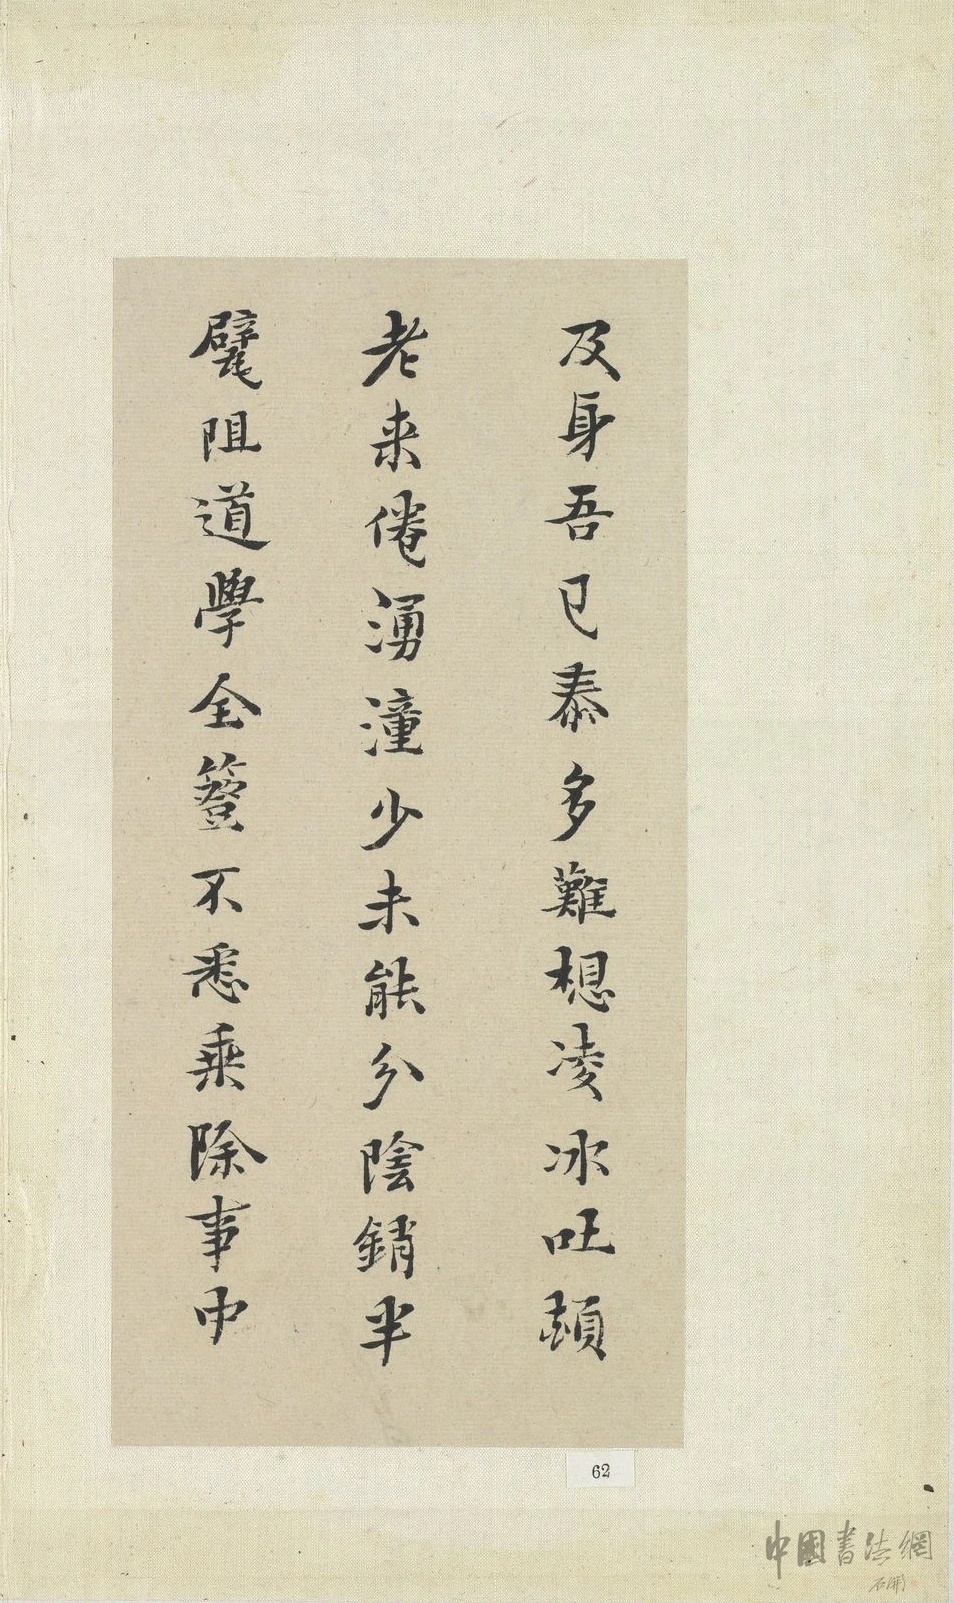 及身吾已泰多難想凌冰吐頭
老来倦湧潼少未能分陰銷半
氂阻道學全簦不悉乘除事中
62
中國書法網